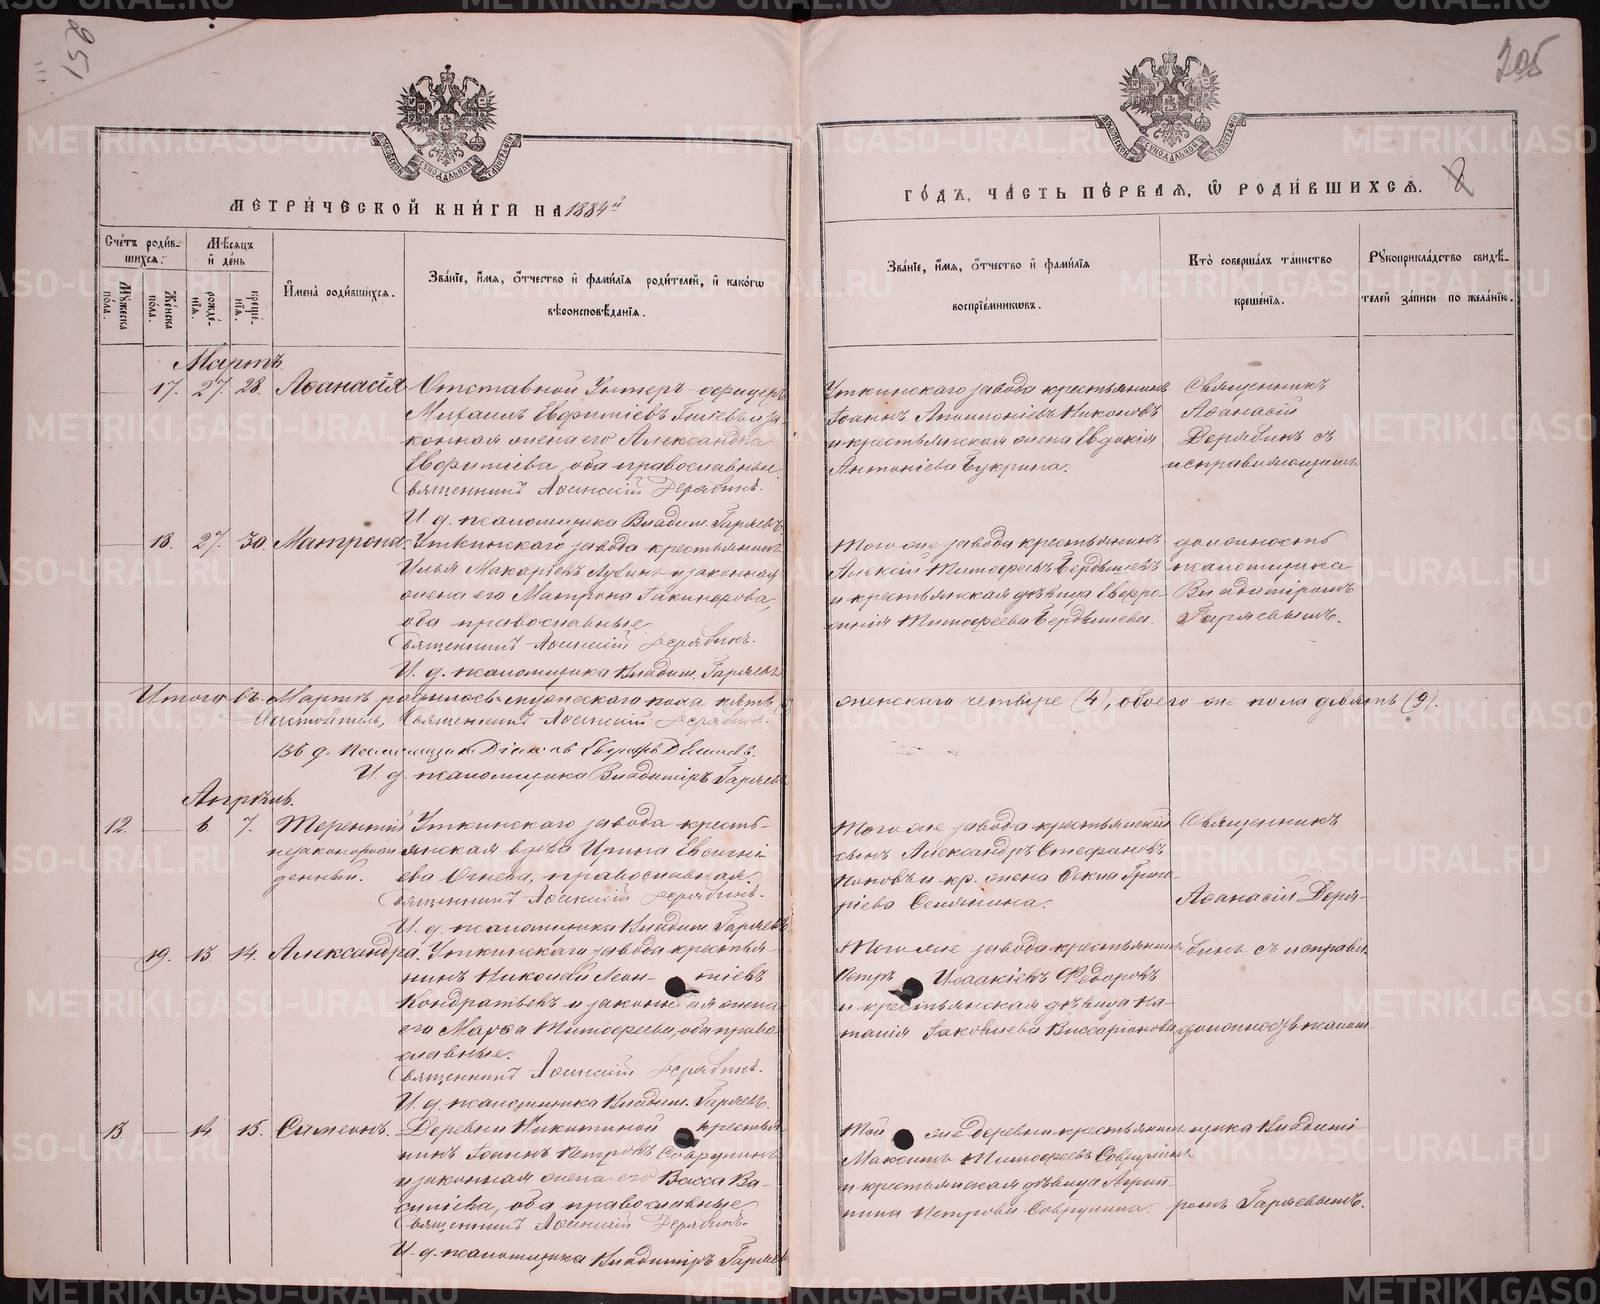 251
205
МЕТРИ́ЧЕСКОЙ КНИ́ГИ НА 1884й
ГО́ДЪ, ЧА́СТЬ ПЕ́РВАЯ, Ѡ РОДИ́ВШИХСЯ.
8
Сче́тъ роди́в-
шихся.
Мѣ́сяцъ
и де́нь
Мꙋ́жеска
по́ла.
Же́нска
по́ла.
рожде́-
нїя.
креще́-
нїя.
И́мена̀ роди́вшихся.
Зва́нїе, и́мя, о́тчество и фами́лїя роди́телей, и како́гѡ
вѣроисповѣ́данїя.
Зва́нїе, и́мя, о́тчество и фами́лїя
воспрїе́мникѡвъ.
Кто̀ соверша́лъ та́инство
креще́нїя.
Рꙋкоприкла́дство свидѣ́-
телей за́писи по жела́нїю.
Мартъ
17. 27. 28. Аѳанасія
Отставной Унтеръ-офицеръ
Михаилъ Евфиміевъ и за-
конная жена его Александра
Евфиміева, оба православные
Священникъ Аѳанасій Дерябинъ.
И. д. псаломщика Владим. Гаряевъ
Уткинскаго завода крестьянинъ
Іоаннъ Никоновъ
и крестьянская жена Евдокія
Антоніева Букрина.
Священникъ
Аѳанасій
Дерябинъ съ
исправляющимъ
18. 27. 30. Матрона
Уткинскаго завода крестьянинъ
Илья Макаріевъ и законная
жена его Матрона
оба православные
Священникъ Аѳанасій Дерябинъ.
И. д. псаломщика Владим. Гаряевъ
Того же завода крестьянинъ
Алексій Тимоѳеевъ Бердышевъ
и крестьянская дѣвица Евфро-
синія Тимоѳеева Бердышева.
должность
псаломщика
Владиміромъ
Гаряевымъ.
Итого въ Мартѣ родилось мужескаго пола пять
женскаго четыре (4), обоего же пола девять (9).
Настоятель, Священникъ Аѳанасій Дерябинъ.
И. д. псаломщика Владиміръ Гаряевъ
Апрѣль.
12. — 6 7. Терентій
незаконорож
денный.
Уткинскаго завода кресть-
янская вдова Ирина Евгені-
ева Огнева, православная
Священникъ Аѳанасій Дерябинъ.
И. д. псаломщика Владим. Гаряевъ
Того же завода крестьянскій
сынъ Александръ Стефановъ
Поповъ и кр. жена Ѳекла Григо-
ріева
Священникъ
Аѳанасій Деря-
19. 13 14. Александра.
Уткинскаго завода крестья-
нинъ Николай Леон- тіевъ
Кондратьевъ и законн ая жена
его Марѳа Тимоѳеева, оба право-
славные.
Священникъ Аѳанасій Дерябинъ.
И. д. псаломщика Владим. Гаряевъ.
Того же завода крестьянинъ
Петръ Исаакіевъ Федоровъ
и крестьянская дѣвица На-
талія Іаковлева Виссаріонова
бинъ съ исправл.
должность псалом-
13. — 14 15. Симеонъ.
Деревни Никитиной крестья-
нинъ Іоаннъ Петровъ Совкунинъ
и законная жена его Васса Ва-
силіева, оба православные
Священникъ Аѳанасій Дерябинъ.
И. д. псаломщика Владиміръ Гаряевъ
Той же деревни крестьянинъ
Максимъ Тимоѳеевъ
и крестьянская дѣвица Агрип-
пина Петрова
щика Владимі-
ромъ Гаряевымъ.
METRIKI.GASO-URAL.RU